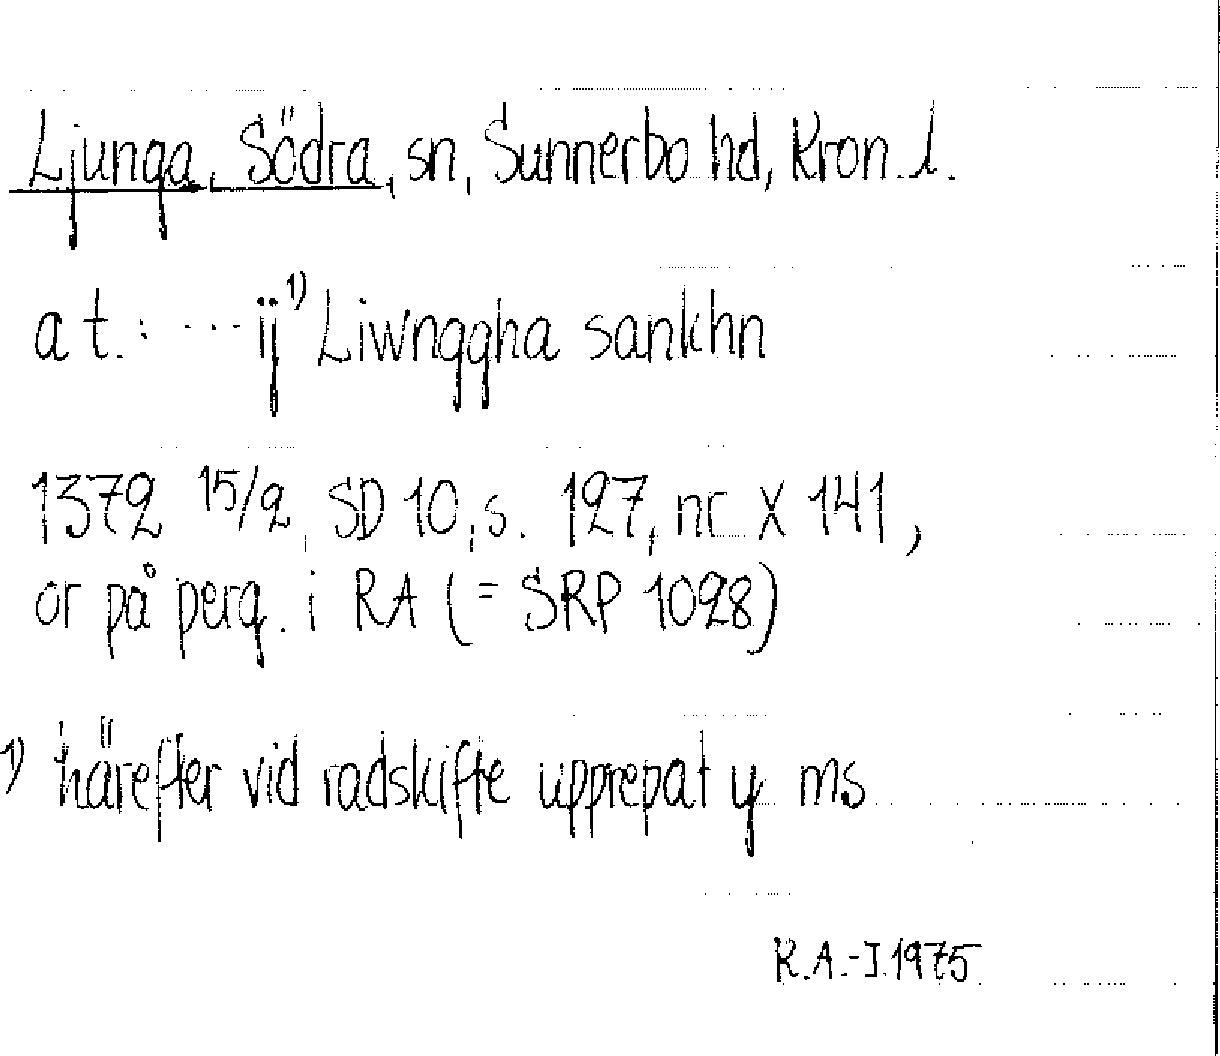 Ljunga, Södra, sn, Sunnerbo hd, Kron. l.
a t. : ... ij 1) Liwnggha sankhn
1372 15/2, SD 10, s. 127, nr X 141,
or på perg. i RA (= SRP 1028)
1) härefter vid radskifte upprepat y ms
R.A.-I.1975